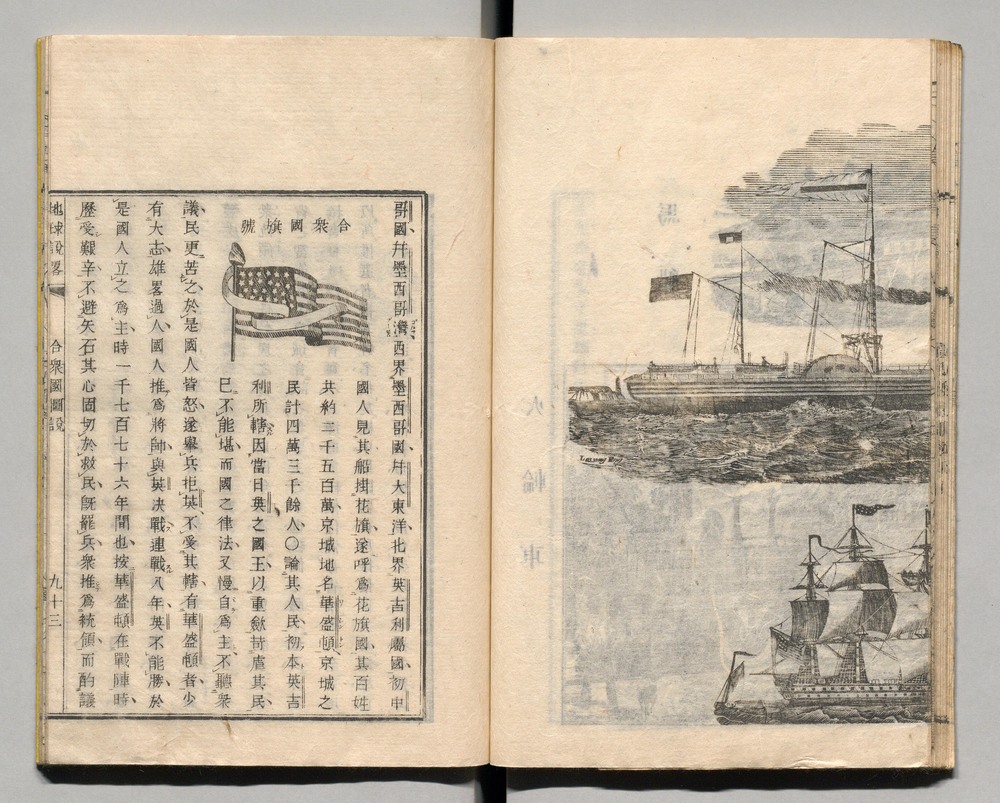 哥國幷墨西哥灣西界墨西哥國幷大東洋北界英吉利屬國初中
合衆國旗號
國人見其船掛花旗遂呼爲花旗國其百姓
共約二千五百萬京城地名華盛頓京城之
民計四萬三千餘人〇論其人民初本英吉
利所轄因當日英之國王以重斂苛虐其民
已不能堪而國之律法又慢自爲主不聽衆
議民更苦之於是國人皆怒遂舉兵拒英不受其轄有華盛頓者少
有大志雄畧過人國人推爲將帥與英決戰連戰八年英不能勝於
是國人立之爲主時一千七百七十六年間也按華盛頓在戰陣時
歷受艱辛不避矢石其心固切於救民旣罷兵衆推爲統領而酌議
地球說畧
合衆國圖說
九十三
火輪車